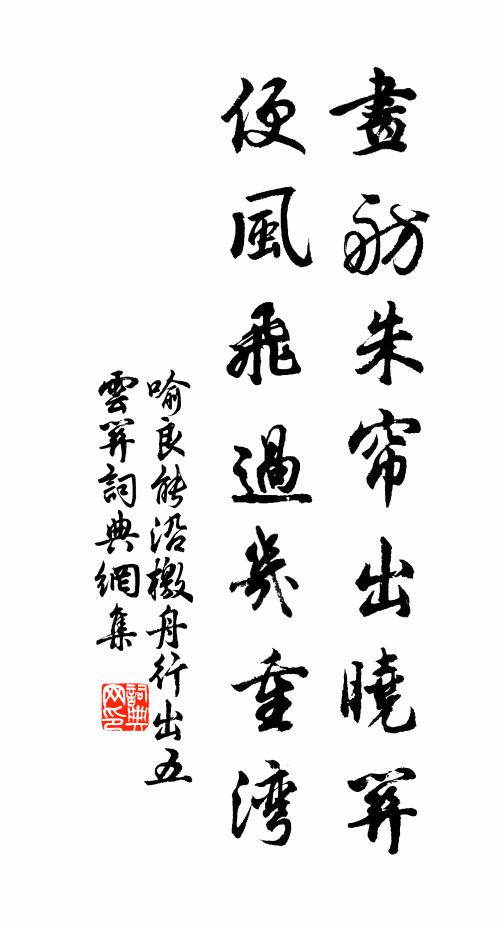 畫舫朱帘出曉關
便風飛過幾重灣
喻良能沿檄舟行出五
雲關詞典網集
詞典网印